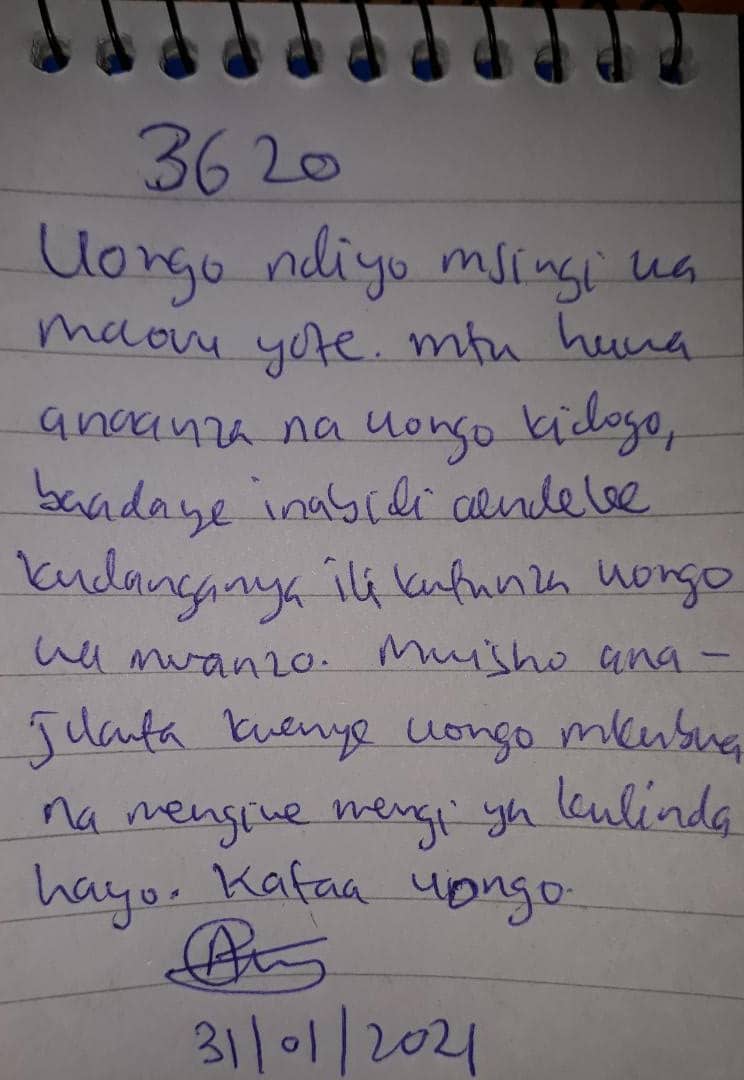 3620
Uongo ndiyo msingi wa
maovu yote. mtu huwa
anaanza na uongo kidogo,
baadaye inabidi aendelee
kudanganya ili kufunza uongo
wa mwanzo. Mwisho ana-
jikuta kwenye uongo mkubwa
na mengine mengi ya kulinda
hayo. Kataa uongo.
31/01/2021